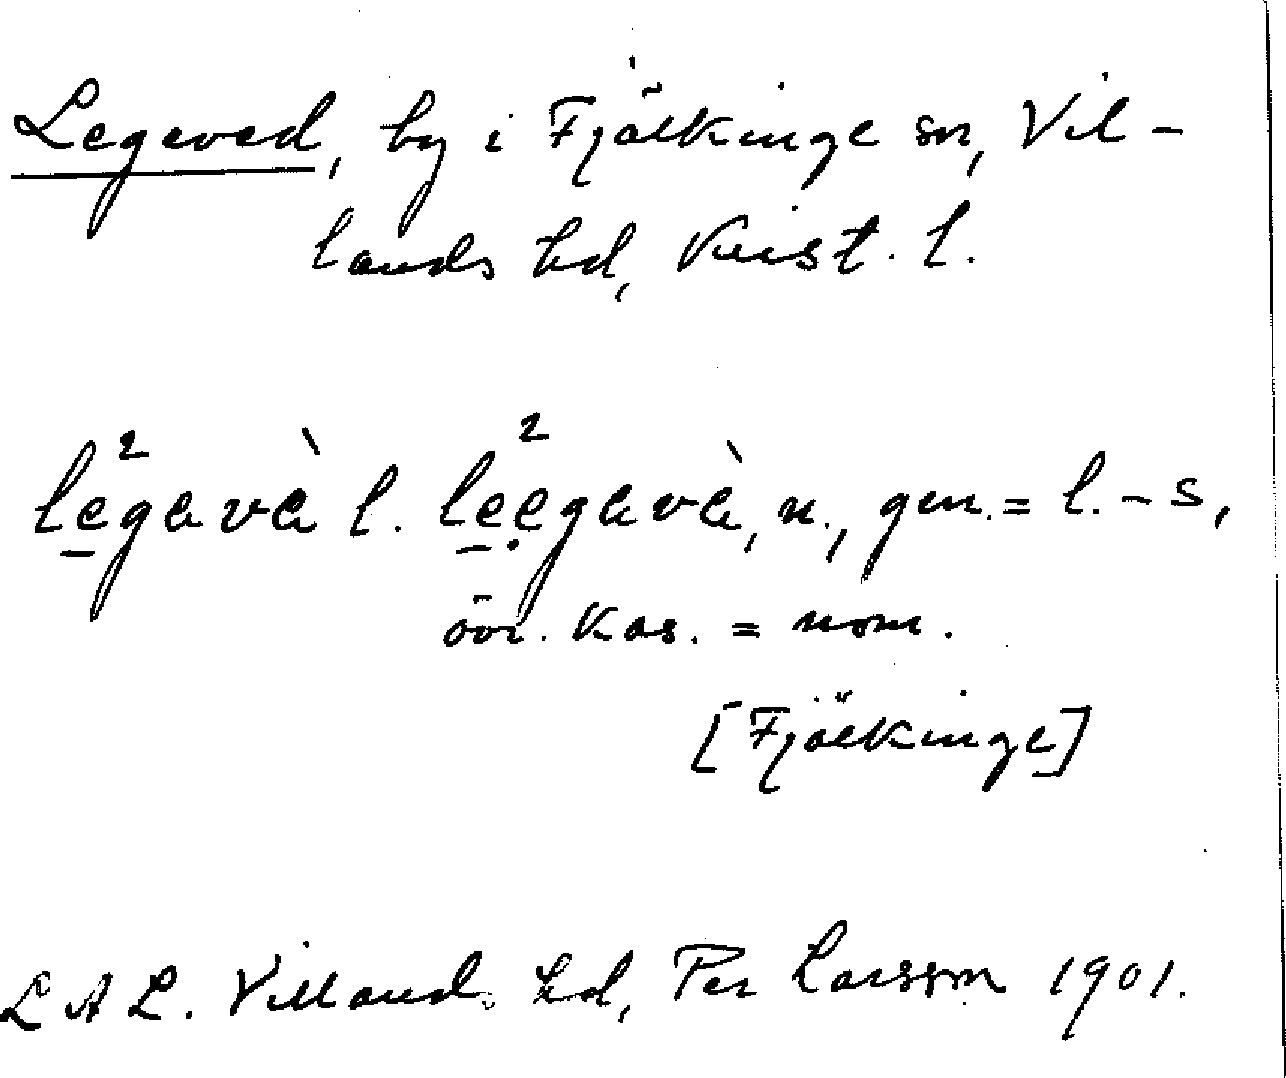 Legeved, by i Fjälkinge sn, Vil-
lands hd, Krist. l.
le²gavà l. le²ẹgavà, n., gen. = l. - s,
övr. kas. = nom.
[Fjälkinge]
LAL. Villands hd, Per Larsson 1901.